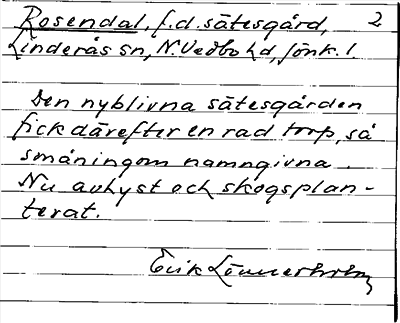 Rosendal, f.d. sätesgård, 2
Linderås sn, N. Vedbo hd, Jönk. l.
Den nyblivna sätesgården
fick därefter en rad torp, så
småningom namngivna.
Nu avhyst och skogsplan-
terat.
Erik Lönnerholm